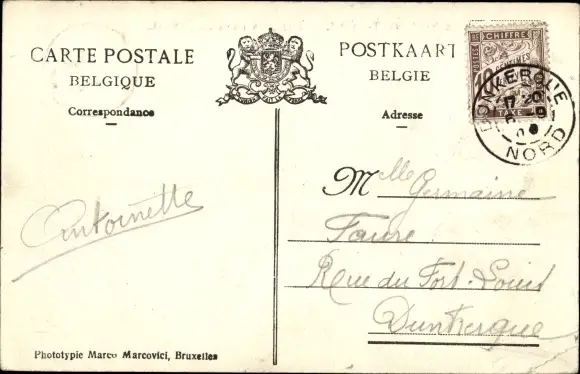 CARTE POSTALE
BELGIQUE
Correspondance
POSTKAART
BELGIE
Adresse
CHIFFRE
10 CENTIMES
TAXE
DUNKERQUE
17 20
NORD
Antoinette
Mlle Germaine
Faure
Rue du Fort-Louis
Dunkerque
Phototypie Marco Marcovici, Bruxelles